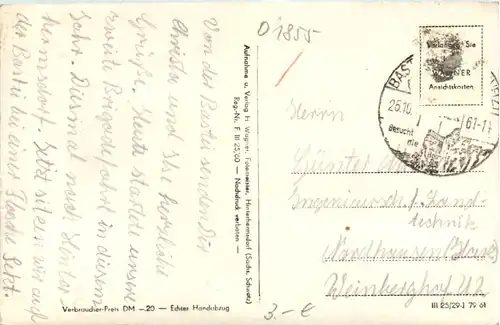 Von der Bastei senden Dir
Christa und Ilse herzliche
Grüße. Heute startete unsere
zweite Brigadefahrt in diesem
Jahr. Diesmal nach Hinter-
hermsdorf. Jetzt sitzen wir auf
der Bastei bei einer Flasche Sekt.
Aufnahme u. Verlag H. Wagner, Fotomeister, Hinterhermsdorf (Sächs. Schweiz)
Reg.-Nr. F III 25/60 — Nachdruck verboten —
Verbraucher-Preis DM —.20 — Echter Handabzug
O 1855
Verlangen Sie
WAGNER
Ansichtskarten
BAST
25.10.
61-11
Besucht
die
Herrn
Günter
Ingenieursch. f. Land-
technik
Nordhausen/Harz
Weinberghof
3.-€
III 25/29-J 79 61